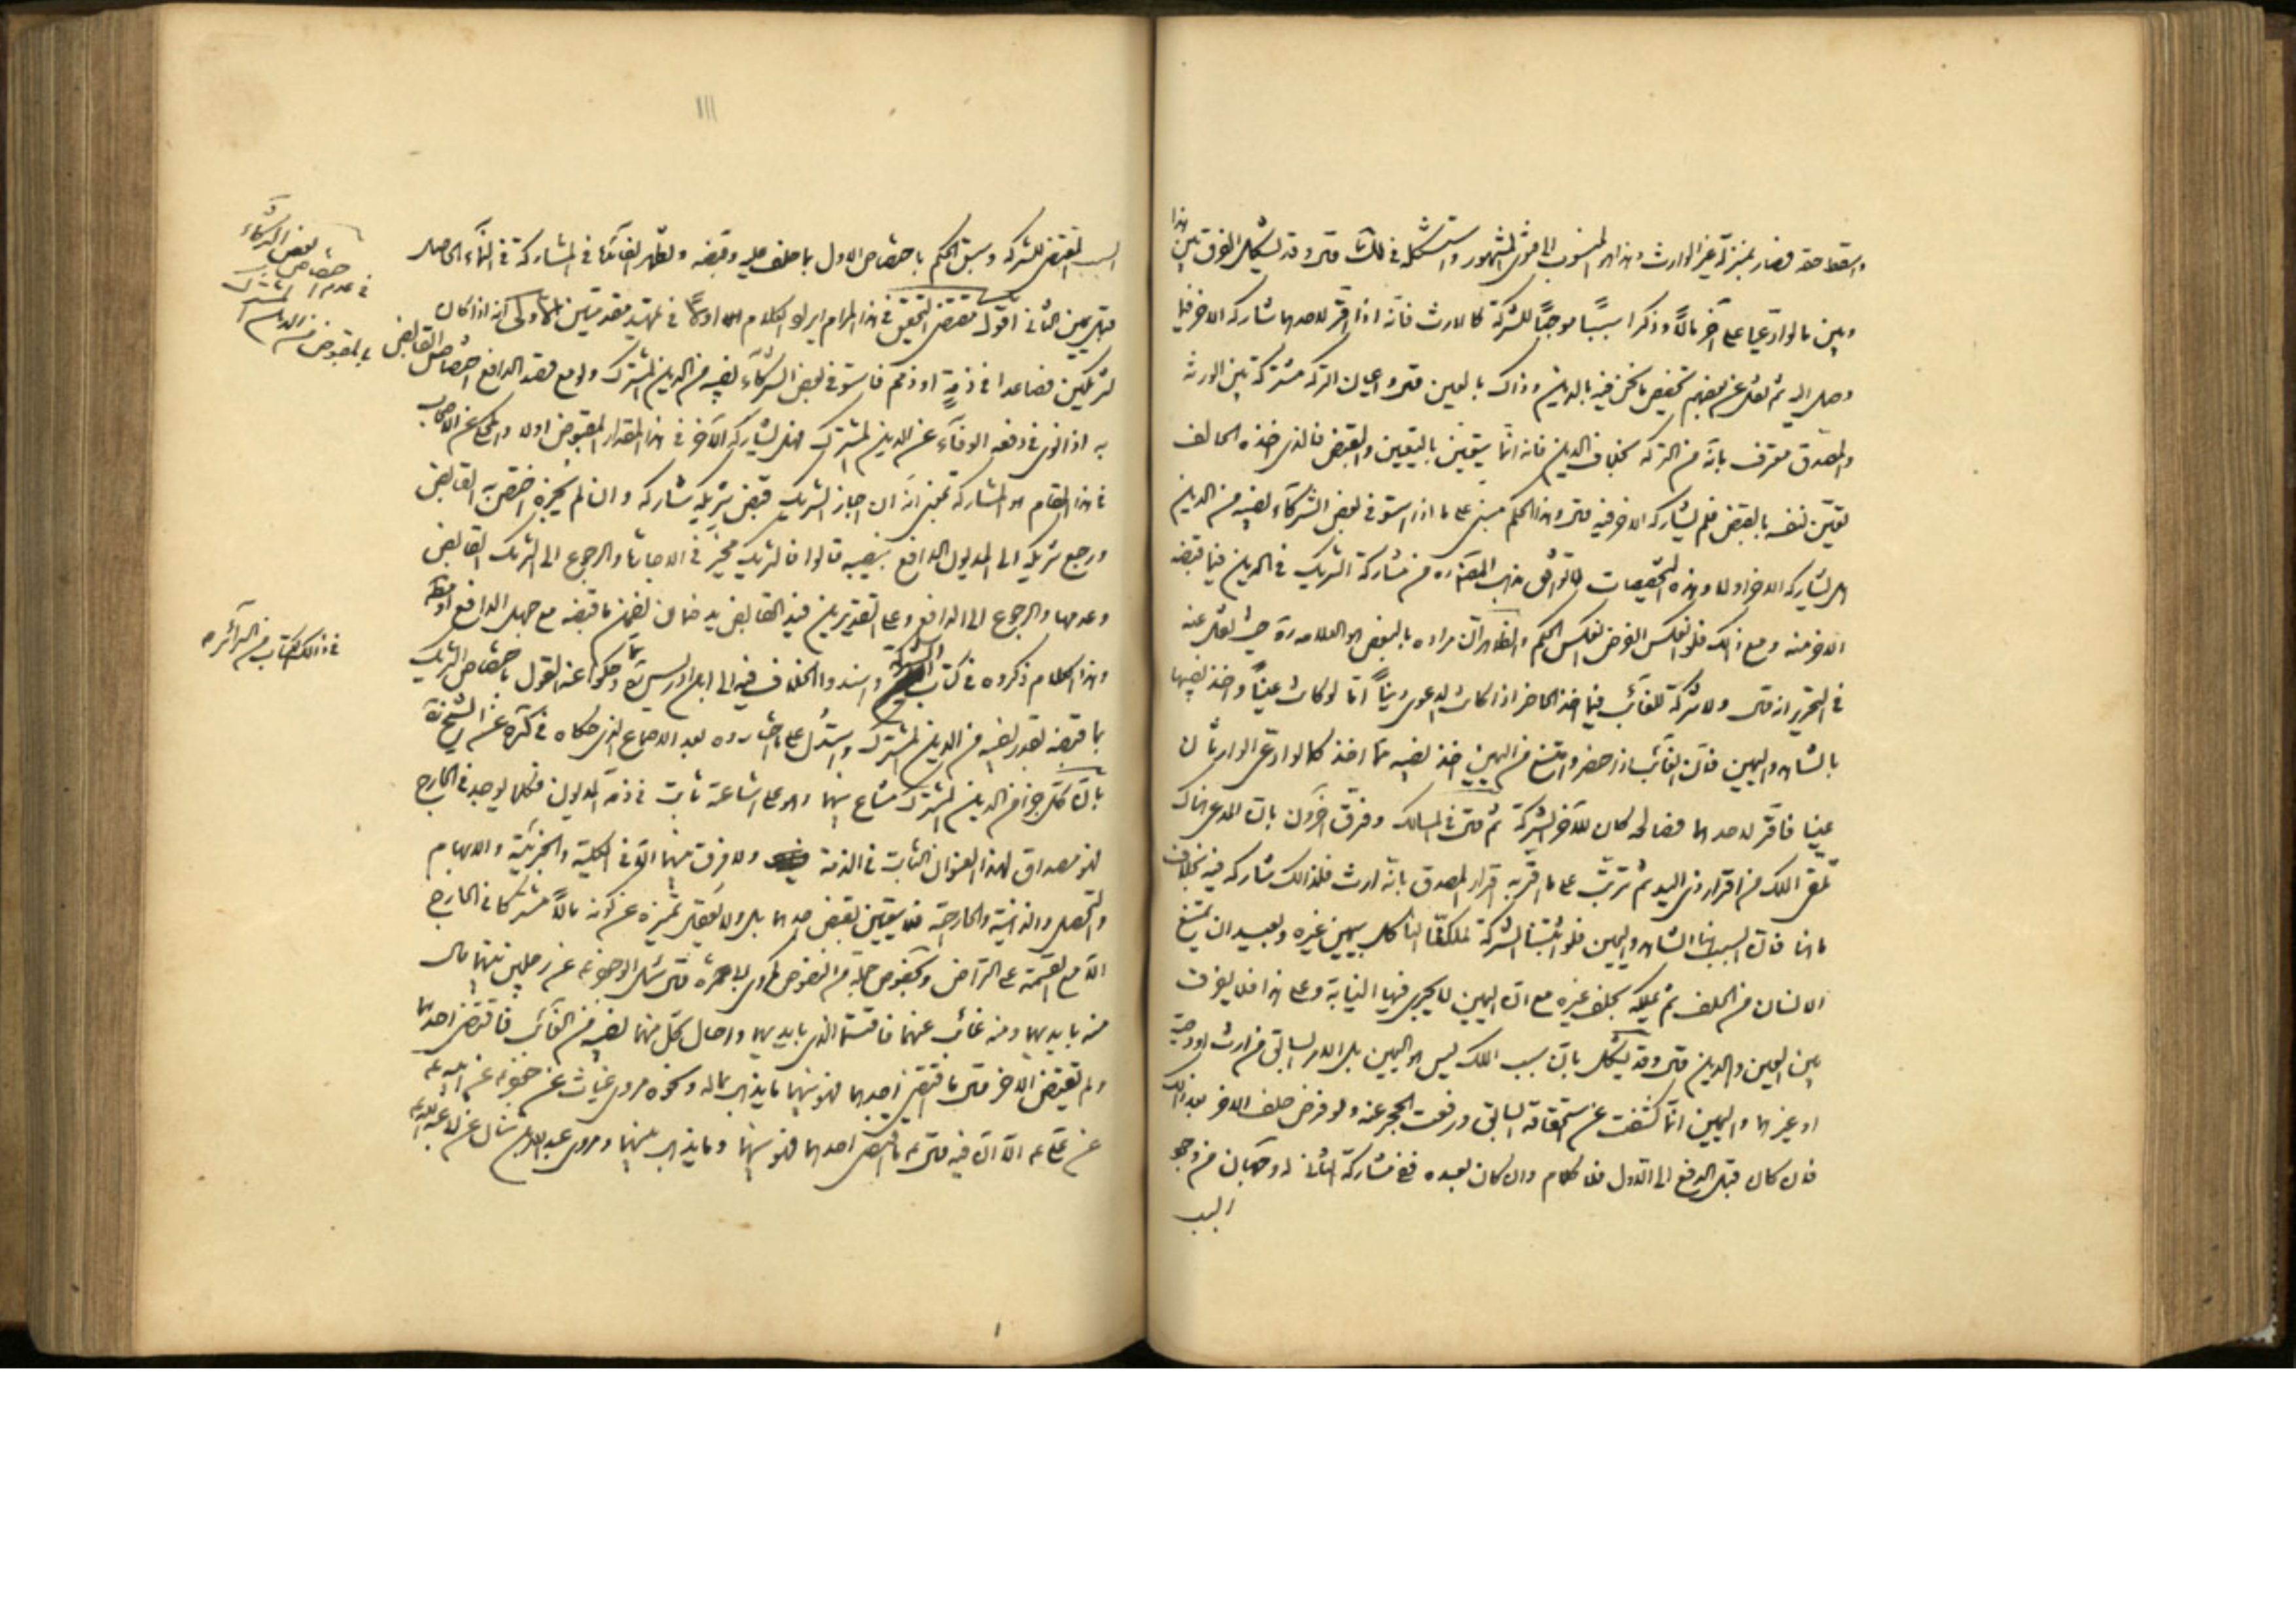 واسقط حقه فصار بمنزلة غير الوارث وهذا هو المنسوب الى فتوى المشهور واستشكل في ذلك قال وقد يشكل الفرق بين هذا
وبين ما لو ادعيا على آخر مالا وذكرا سببًا موجبًا للشركة كالارث فانه اذا اقر لاحدهما شاركه الاخر فيما
وصل اليه ثم نقل عن بعضهم تخصيص ما نحن فيه بالدين وذاك بالعين قال واعيان التركة مشتركة بين الورثة
والمصدق معترف بانه من التركة بخلاف الدين فانه انما يتعين بالتعيين والقبض فالذي اخذه الحالف
تعين لنفسه بالقبض فلم يشاركه الاخر فيه قال وهذا الحكم مبنى على ما اذا استوفى بعض الشركاء نصيبه من الدين
هل يشاركه الاخر اولا وهذه التخصيصات لا توافق مذهب المصنف ره من مشاركة الشريك في الدين فيما قبضه
الاخر منه ومع ذلك فلو انعكس الفرض انعكس الحكم والظاهر ان مراده بالبعض هو العلامة ره حيث نقل عنه
في التحرير انه قال ولا شركة للغائب فيما اخذ الحاضر اذا كانت الدعوى دينًا اما لو كانت عينًا واخذ نصيبها
بالشاهد واليمين فان الغائب اذا حضر وامتنع من اليمين اخذ نصيبه مما اخذ كما لو ادعى الوارثان
عينا فاقر لاحدهما فصالحه كان للآخر الشركة ثم قال في المسالك وفرق آخرون بان المدعى هناك
تلقى الملك من اقرار ذى اليد ثم ترتب على ما اقر به اقرار المصدق بانه ارث فلذلك شاركه فيه بخلاف
ما هنا فان السبب هنا الشاهد واليمين فلو اثبتنا الشركة لملكنا الناكل بيمين غيره وبعيد ان يمتنع
الانسان من الحلف ثم يملكه بحلف غيره مع ان اليمين لا يجرى فيها النيابة وعلى هذا فلا يفرق
بين العين والدين قال وقد يشكل بان سبب الملك ليس هو اليمين بل الامر السابق من ارث او وصية
او غيرهما واليمين انما كشفت عن استحقاقه السابق ورفعت الحجر عنه ولو فرض حلف الاخر بعد ذلك
فان كان قبل الدفع الى الاول فلا كلام وان كان بعده ففي مشاركة الثاني له وجهان من وجود
السبب
السبب المقتضى للشركة وسبق الحكم باختصاص الاول بما حلف عليه وقبضه وتظهر الفائدة في المشاركة في النماء الحاصل
قبل يمين الثاني اقول مقتضى التحقيق في هذا المرام ايراد الكلام اولاً في تمهيد مقدمتين الاولى انه اذا كان
لشريكين فصاعدا في ذمة او ذمم فاستوفى بعض الشركاء نصيبه من الدين المشترك ولو مع قصد الدافع اختصاص القابض
به اذا نوى في دفعه الوفاء عن الدين المشترك فهل يشاركه الآخر في هذا المقدار المقبوض اولا والمحكى عن الاصحاب
في هذا المقام هو المشاركة بمعنى انه ان اجاز الشريك قبض شريكه شاركه وان لم يجزه اختص به القابض
ورجع شريكه الى المديون الدافع بنصيبه قالوا فالشريك مخير في الاجازة والرجوع الى الشريك القابض
وعدمها والرجوع الى الدافع وعلى التقديرين فيد القابض يد ضمان لضمن ما قبضه مع جهل الدافع او
وهذا الكلام ذكروه في كتاب الشركة واسندوا الخلاف فيه الى ابن ادريس ره وحكوا عنه القول باختصاص الشريك
بما قبضه بقدر نصيبه من الدين المشترك واستدل على ما اختاروه بعد الاجماع الذى حكاه في كره عن الشيخ ره
بان كل جزء من الدين المشترك مشاع بينهما وهو على اشاعته ثابت في ذمة المديون فكلما يوجد في الخارج
فهو مصداق لهذا العنوان الثابت في الذمة ولا فرق بينهما الا في الكلية والجزئية والابهام
والتحصل والذهنية والخارجية فلا يتعين بقبض احدهما بل ولا يعقل تميزه عن كونه مالا مشتركا في الخارج
الا مع القسمة على التراضى وبخصوص جملة من النصوص كمروى قال سئل ابو جعفر ع عن رجلين بينهما مال
منه بايديهما ومنه غائب عنهما فاقتسما الذى بايديهما واحال كل منهما نصيبه من الغائب فاقتضى احدهما
ولم يقتض الاخر قال ما اقتضى احدهما فهو بينهما ما يذهب بماله ونحوه مروى غياث عن جعفر ع عن ابيه ع
عن على ع الا ان فيه قال ع ما اقتضى احدهما فهو بينهما وما يذهب بينهما ومروى عبد الله بن سنان عن ابى عبد الله ع
في عدم اختصاص بعض الشركاء
بالمقبوض من الدين المشترك